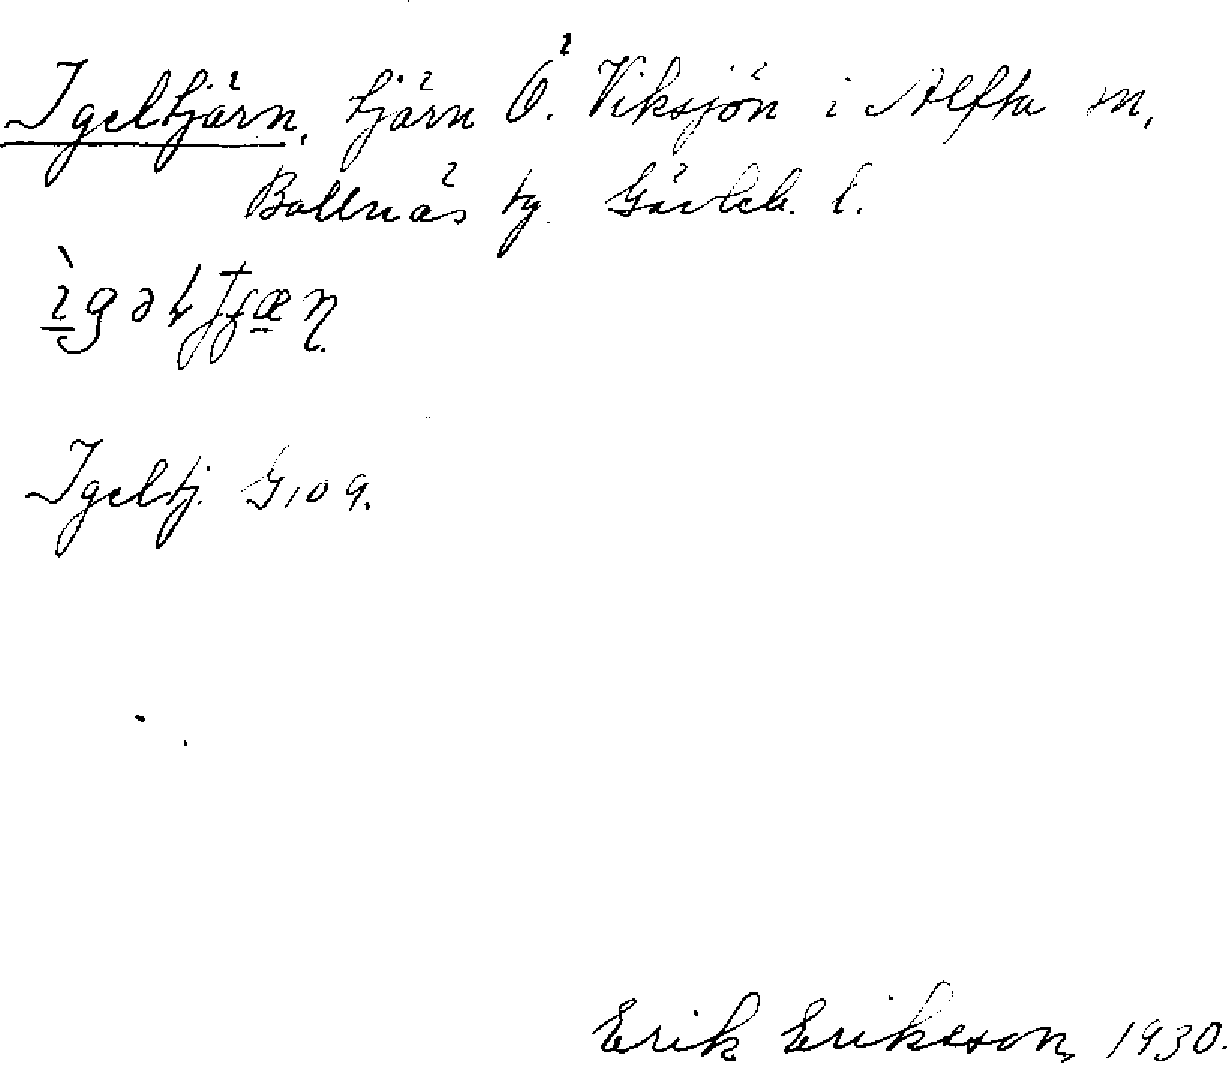 Igeltjärn, tjärn Ö. Viksjön i Alfta sn,
Bollnäs tg. Gävleb. l.
Igeltj. G 109.
Erik Erikeson, 1930.